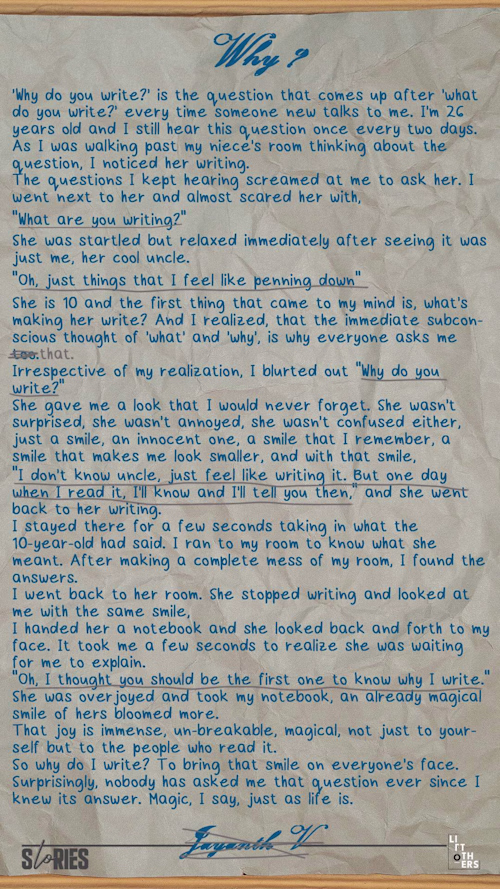 Why ?
'Why do you write?' is the question that comes up after 'what
do you write?' every time someone new talks to me. I'm 26
years old and I still hear this question once every two days.
As I was walking past my niece's room thinking about the
question, I noticed her writing.
The questions I kept hearing screamed at me to ask her. I
went next to her and almost scared her with,
"What are you writing?"
She was startled but relaxed immediately after seeing it was
just me, her cool uncle.
"Oh, just things that I feel like penning down"
She is 10 and the first thing that came to my mind is, what's
making her write? And I realized, that the immediate subcon-
scious thought of 'what' and 'why', is why everyone asks me
too.that.
Irrespective of my realization, I blurted out "Why do you
write?"
She gave me a look that I would never forget. She wasn't
surprised, she wasn't annoyed, she wasn't confused either,
just a smile, an innocent one, a smile that I remember, a
smile that makes me look smaller, and with that smile,
"I don't know uncle, just feel like writing it. But one day
when I read it, I'll know and I'll tell you then," and she went
back to her writing.
I stayed there for a few seconds taking in what the
10-year-old had said. I ran to my room to know what she
meant. After making a complete mess of my room, I found the
answers.
I went back to her room. She stopped writing and looked at
me with the same smile,
I handed her a notebook and she looked back and forth to my
face. It took me a few seconds to realize she was waiting
for me to explain.
"Oh, I thought you should be the first one to know why I write."
She was overjoyed and took my notebook, an already magical
smile of hers bloomed more.
That joy is immense, un-breakable, magical, not just to your-
self but to the people who read it.
So why do I write? To bring that smile on everyone's face.
Surprisingly, nobody has asked me that question ever since I
knew its answer. Magic, I say, just as life is.
Jayanth V
STORIES
LI
TT
OTH
ERS